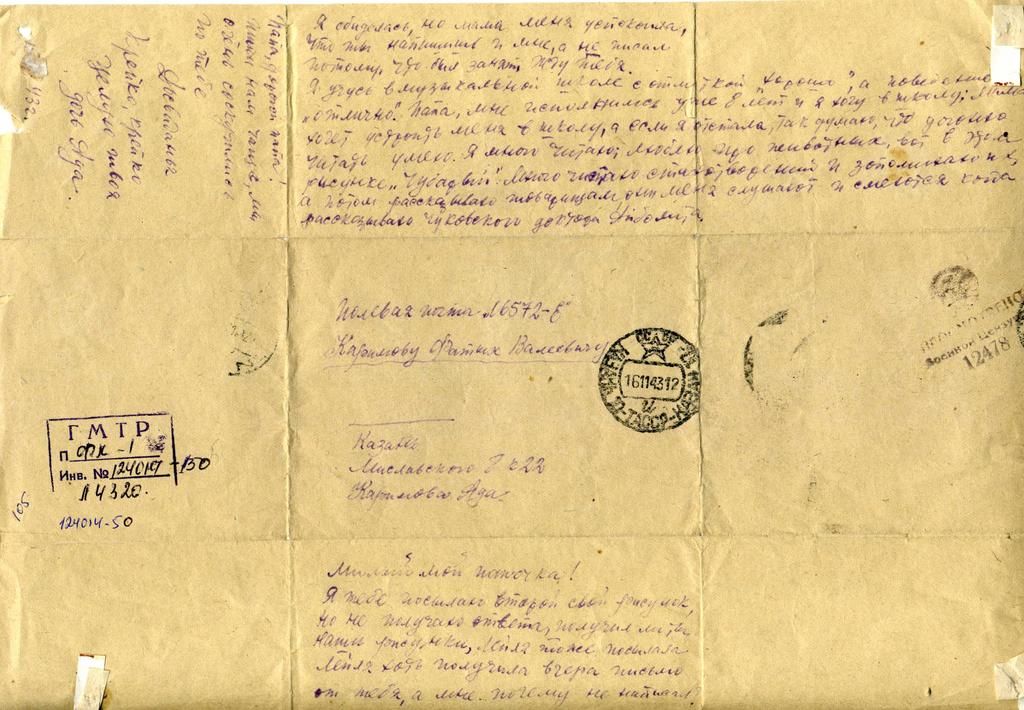 Я обиделась, но мама меня успокоила,
что ты напишишь и мне, а не писал
потому, что был занят. Жду тебя.
Я учусь в музыкальной школе с отметкой "хорошо", а поведению
"отлично". Папа, мне исполнилось уже 8 лет и я хочу в школу. Мама
хочет устроить меня в школу, а если я отстала, так думаю, что догоню
Читать умею. Я много читаю, люблю про животных, вот в этом
рисунке "Чубарый". Много читаю стихотворений и запоминаю их,
а потом рассказываю товарищам, они меня слушают и смеются когда
рассказываю Чуковского доктора Айболита.
Папа, дорогой папа!
Пиши нам чаще, мы
очень соскучились
по тебе
Досвиданья
Крепко, крепко
целует твоя
дочь Ада.
Полевая почта №6572-Е
Каримову Фатых Валеевичу
Казань
Миславского 8 к 22
Каримова Ада
КАЗАНЬ
ТАССР
16114312
ПРОСМОТРЕНО
Военной Цензурой
12478
ГМТР
П ФК-1
Инв. № 124014-50
Л 4320.
124014-50
Милый мой папочка!
Я тебе посылаю второй свой рисунок,
но не получаю ответа, получил ли ты
наши рисунки, Лейла тоже посылала
Лейла хоть получила вчера письмо
от тебя, а мне почему не написал?